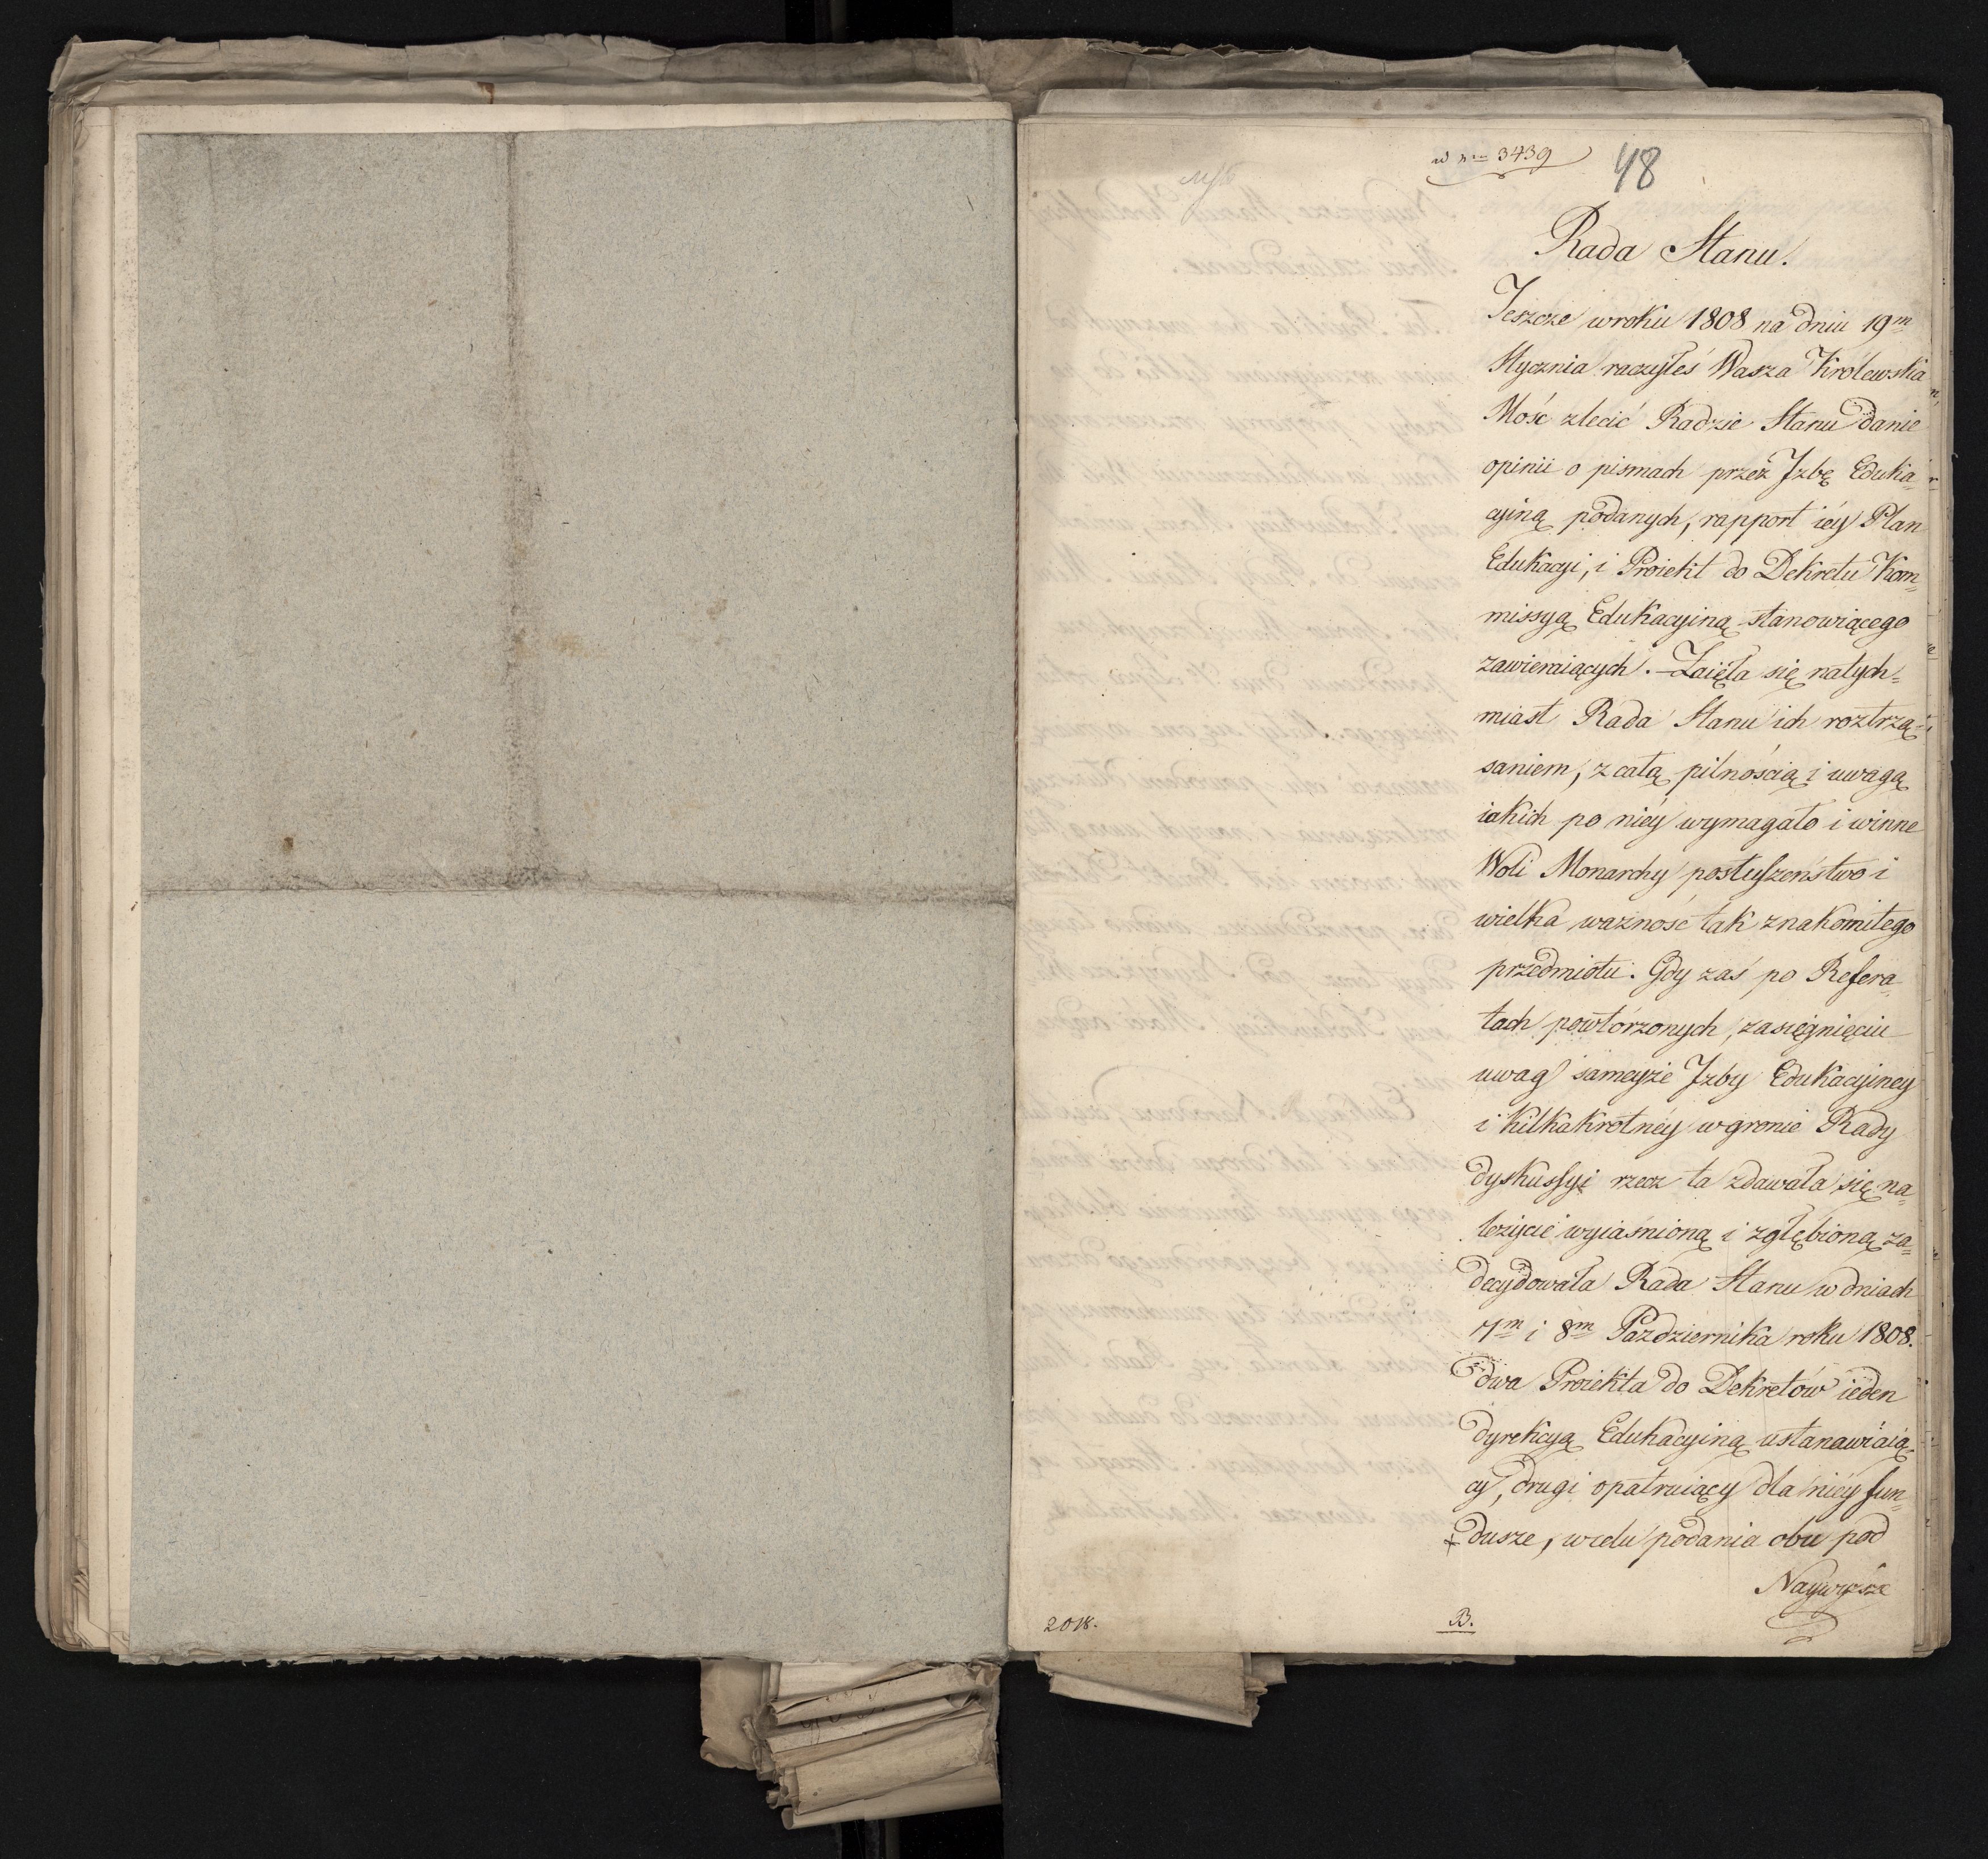 w nrze 3439
48
Rada Stanu.
Jeszcze w roku 1808 na dniu 19m
Stycznia raczyłeś Wasza Królewska
Mość zlecić Radzie Stanu danie
opinii o pismach przez Jzbę Eduka=
cyiną podanych, rapport iéy Plan
Edukacyi, i Proiekt do Dekretu Kom=
missyą Edukacyiną stanowiącego
zawieraiących. – Zaięła się natych=
miast Rada Stanu ich roztrzą=
saniem, z całą pilnością i uwagą
iakich po niéy wymagało i winne
Woli Monarchy posłuszeństwo i
wielka ważność tak znakomitego
przedmiotu. Gdy zaś po Refera=
tach powtórzonych, zasięgnięciu
uwag sameyże Jzby Edukacyiney
i kilkakrotnéy w gronie Rady
dyskussyi rzecz ta zdawała się na=
leżycie wyiaśnioną i zgłębioną za=
decydowała Rada Stanu w dniach
7m i 8m Pazdziernika roku 1808.
dwa Proiekta do Dekretów ieden
dyrekcyą Edukacyiną ustanawiaią=
cy, drugi opatruiący dla niéy fun=
dusze, w celu podania obu pod
Naywyższe
2018.
B.